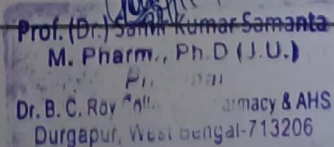 Prof. (Dr.) Samir Kumar Samanta
M. Pharm., Ph.D (J.U.)
Dr. B. C. Roy Coll. Pharmacy & AHS
Durgapur, West Bengal-713206